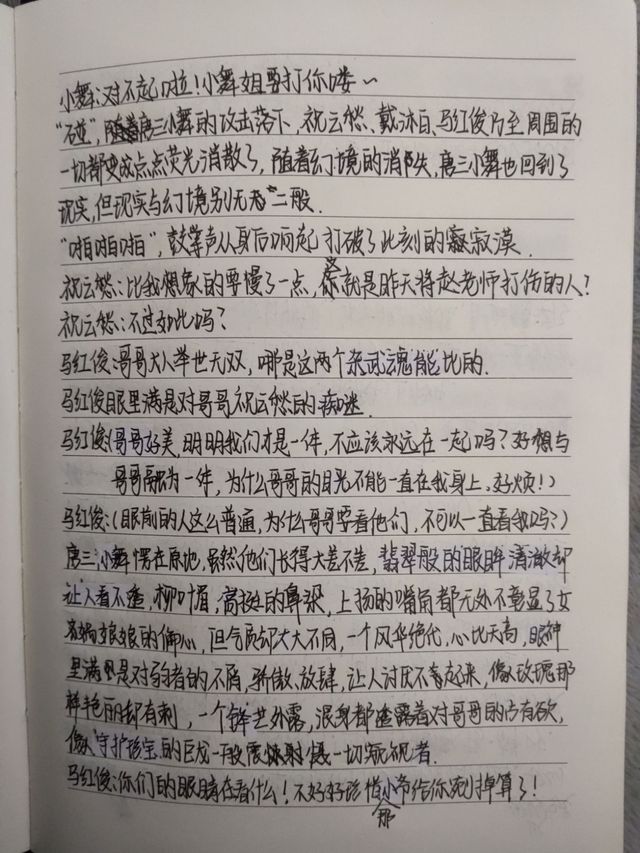 小舞:对不起啦!小舞姐要打你喽~
"碰",随着唐三小舞的攻击落下,祝云愁、戴沐白、马红俊乃至周围的
一切都变成点点荧光消散了,随着幻境的消失,唐三小舞也回到了
现实,但现实与幻境别无二般.
"啪啪啪",鼓掌声从身后响起打破了此刻的寂漠.
祝云愁:比我想象的要慢了一点,你就是昨天将赵老师打伤的人?
祝云愁:不过如此吗?
马红俊:哥哥大人举世无双,哪是这两个杂武魂能比的.
马红俊眼里满是对哥哥祝云愁的痴迷.
马红俊:(哥哥好美,明明我们才是一体,不应该永远在一起吗?好想与
哥哥融为一体,为什么哥哥的目光不能一直在我身上、好烦!)
马红俊:(眼前的人这么普通,为什么哥哥要看他们,不可以一直看我吗?)
唐三、小舞愣在原地,虽然他们长得大差不差,翡翠般的眼眸清澈却
让人看不透,柳叶眉,高挺的鼻梁,上扬的嘴角都无处不彰显了女
娲娘娘的偏心,但气质却大大不同,一个风华绝代,心比天高,眼神
里满是对弱者的不屑,骄傲、放肆,让人讨厌不起来,像从玫瑰那
样艳丽却有刺,一个锋芒外露,浑身都透露着对哥哥的占有欲,
像守护珍宝的巨龙一般震慑一切窥视者.
马红俊:你们的眼睛在看什么!不好好珍惜那小爷给你剜掉算了!